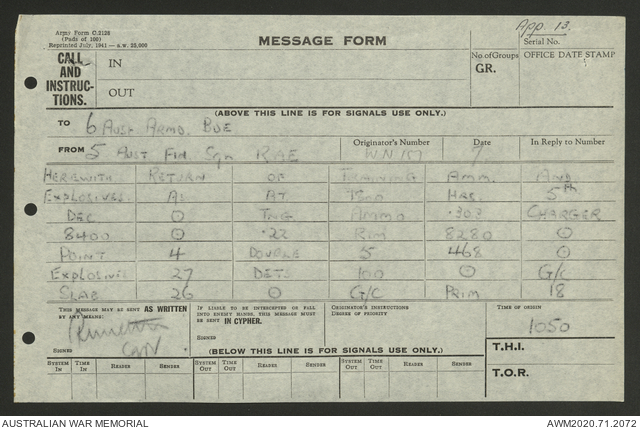 App. 13.
Army Form C.2128
(Pads of 100)
Reprinted July, 1941—A.W. 25,000
MESSAGE FORM
Serial No.
CALL AND INSTRUC-TIONS.
IN
OUT
No. of Groups
GR.
OFFICE DATE STAMP
(ABOVE THIS LINE IS FOR SIGNALS USE ONLY.)
TO 6 AUST ARMD. BDE
FROM 5 AUST FIN. Sqn RAE
Originator's Number WN 157
Date 7
In Reply to Number
HEREWITH RETURN OF TRAINING AMM. AND
EXPLOSIVES AS AT 1500 HRS. 5th
DEC ⊙ TNG AMMO .303 CHARGER
8400 ⊙ .22 RIM 8280 ⊙
POINT 4 DOUBLE 5 468 ⊙
EXPLOSIVE 27 DETS 100 ⊙ G/C
SLAB 26 ⊙ G/C PRIM 18
THIS MESSAGE MAY BE SENT AS WRITTEN BY ANY MEANS:
IF LIABLE TO BE INTERCEPTED OR FALL INTO ENEMY HANDS, THIS MESSAGE MUST BE SENT IN CYPHER.
ORIGINATOR'S INSTRUCTIONS
DEGREE OF PRIORITY
TIME OF ORIGIN
1050
SIGNED
SIGNED
(BELOW THIS LINE IS FOR SIGNALS USE ONLY.)
T.H.I.
T.O.R.
SYSTEM IN TIME IN READER SENDER SYSTEM OUT TIME OUT READER SENDER SYSTEM OUT TIME OUT READER SENDER
AUSTRALIAN WAR MEMORIAL
AWM2020.71.2072